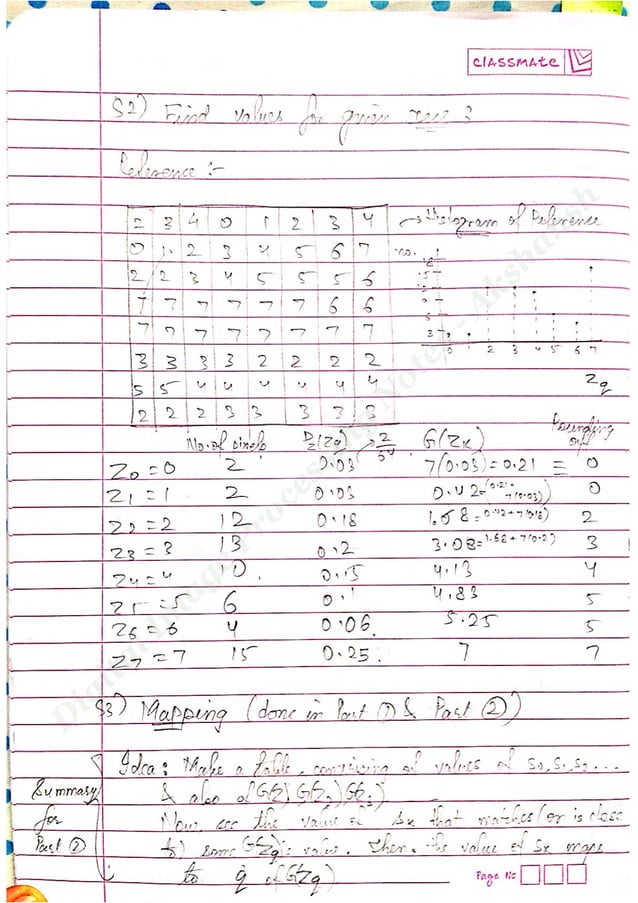 classmate
S2) Find values for given ref :
Reference :-
2 3 4 0 1 2 3 4
0 1 2 3 4 5 6 7
2 2 3 4 5 5 5 6
7 7 7 7 7 7 6 6
7 7 7 7 7 7 7 7
3 3 3 3 2 2 2 2
5 5 4 4 4 4 4 4
2 2 2 3 3 3 3 3
→ Histogram of Reference
no.
0 1 2 3 4 5 6 7
Zq
No. of pixels Pz(Zq) → 2/64 G(Zk) Rounding off
Z0 = 0 2 0.03 7(0.03) = 0.21 = 0
Z1 = 1 2 0.03 0.42 = (0.21 + 7(0.03)) 0
Z2 = 2 12 0.18 1.68 = 0.42 + 7(0.18) 2
Z3 = 3 13 0.2 3.08 = 1.68 + 7(0.2) 3
Z4 = 4 10 0.15 4.13 4
Z5 = 5 6 0.1 4.83 5
Z6 = 6 4 0.06 5.25 5
Z7 = 7 15 0.25 7 7
S3) Mapping (done in Part ① & Part ②)
Summary for Part ②
Idea : Make a table, comprising of values of S0, S1, S2 ...
& also of G(Z1) G(Z2) G(Z3)
Now, see the value of Sk that matches (or is close
to) some G(Zq)'s value. Then, the value of Sk maps
to q of G(Zq)
Page No
Digital Image Processing Notes - Akshansh